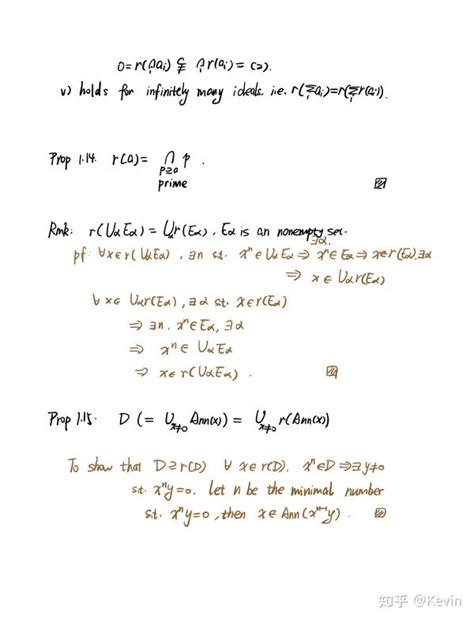 0 = r(∩ᵢ aᵢ) ⊊ ∩ᵢ r(aᵢ) = (2).
v) holds for infinitely many ideals. i.e. r(Σᵢ aᵢ) = r(Σᵢ r(aᵢ)).
Prop 1.14. r(a) = ∩ p .
p⊇a
prime
Rmk: r(∪αEα) = ∪αr(Eα), Eα is an nonempty set.
pf: ∀x∈r(∪αEα), ∃n st. xⁿ∈∪αEα ⇒ xⁿ∈Eα ⇒ x∈r(Eα), ∃α
∃α.
⇒ x∈∪αr(Eα)
∀x∈ ∪αr(Eα), ∃α st. x∈r(Eα)
⇒ ∃n. xⁿ∈Eα, ∃α
⇒ xⁿ∈∪αEα
⇒ x∈r(∪αEα).
Prop 1.15. D (= ∪x≠0 Ann(x)) = ∪x≠0 r(Ann(x))
To show that D⊇r(D) ∀x∈r(D), xⁿ∈D ⇒ ∃y≠0
st. xⁿy=0. let n be the minimal number
st. xⁿy=0, then x∈Ann(xⁿ⁻¹y).
知乎 @Kevin